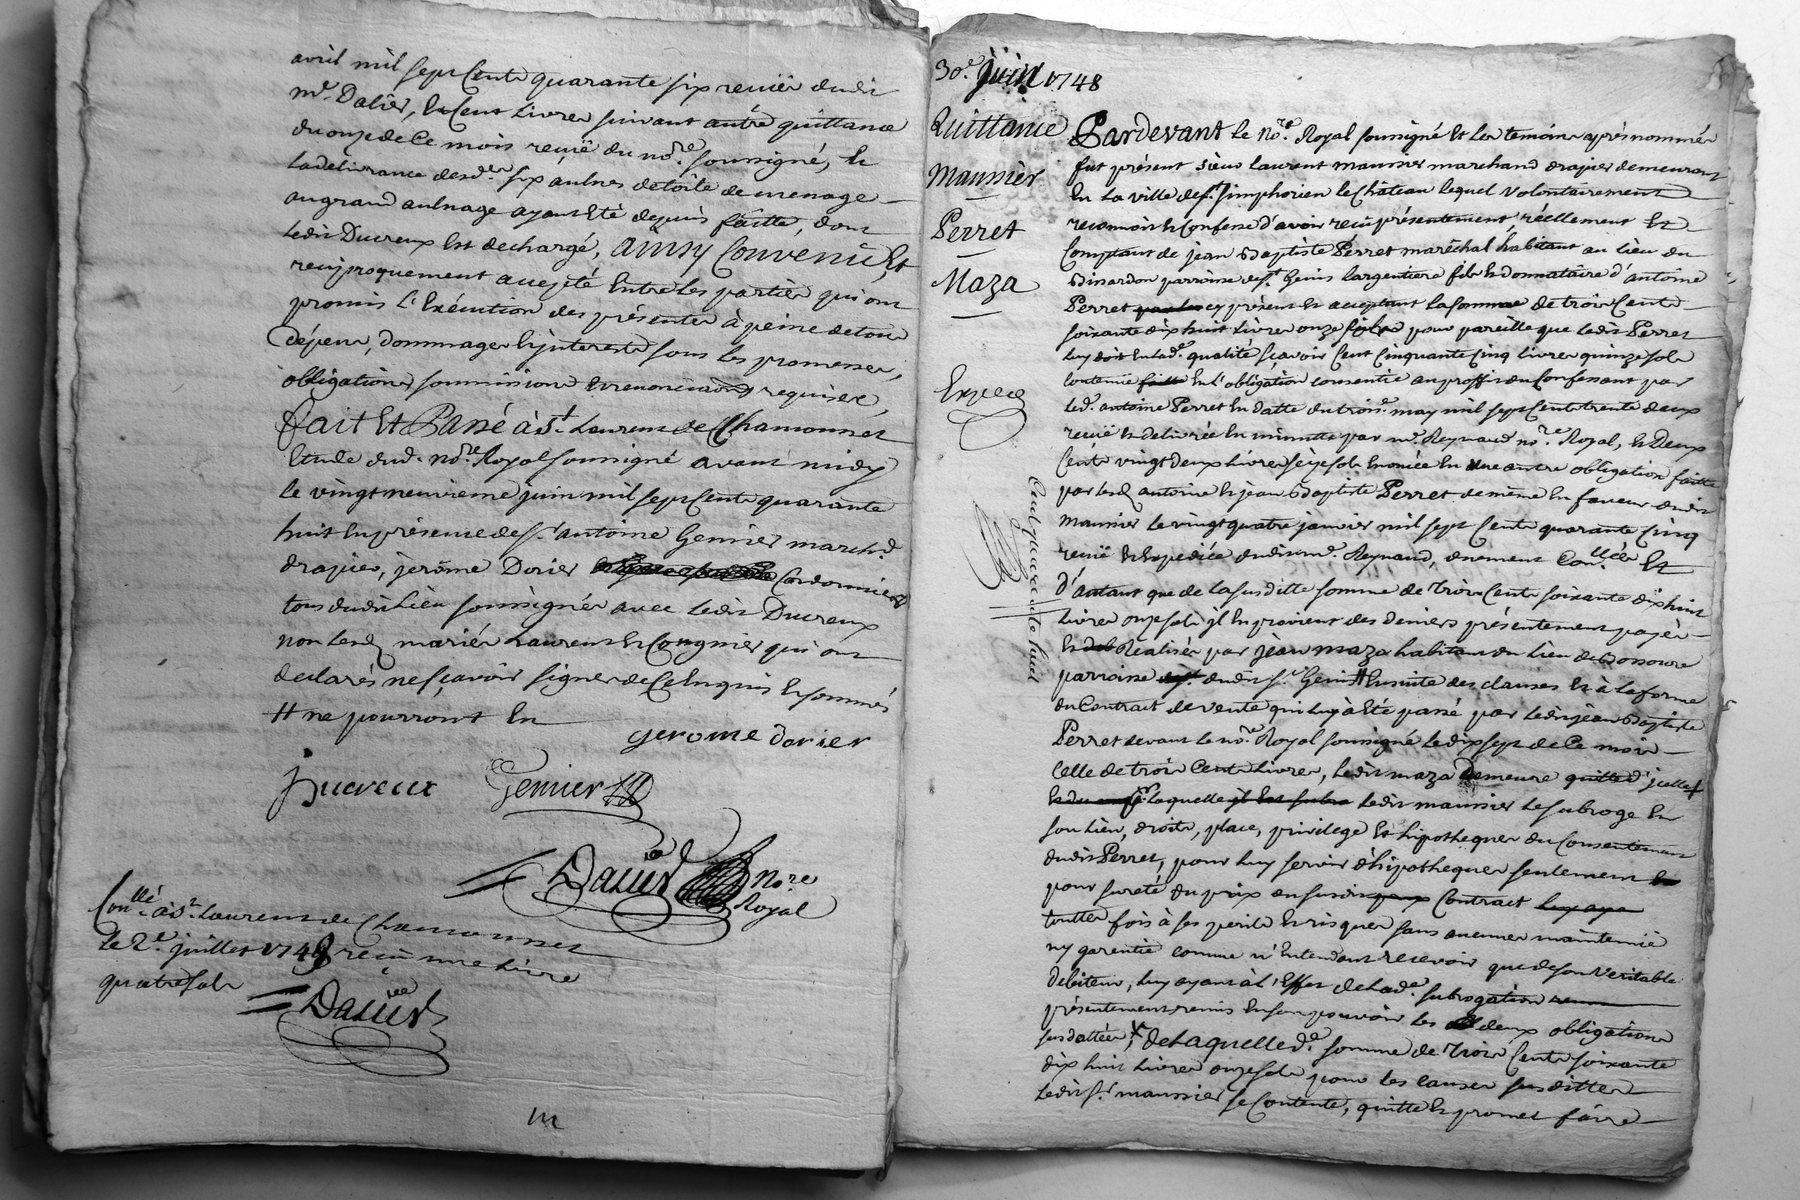 avril mil sept Cents quarante six reçuë dudit
mᵉ. Dalier, et Cent Livres suivant autre quittance
du onze de Ce mois reçuë du noʳᵉ. soussigné, et
la delivrance desd.ᵉˢ six aulnes de toile de menage
au grand aulnage ayant Eté depuis faitte, dont
Ledit Ducreux Est dechargé, ainsy Convenu, Et
reciproquement accepté Entre Les parties qui ont
promis L'Exécution des présentes à peine de tous
dépens, dommages Et jnterests sous Les promesses,
obligations soumissions Et renonciaons requises,
fait Et Passé à Sᵗ. Laurent de Chamousset
Etude dud. noʳᵉ. Royal soussigné avant midy
le vingt neuvieme juin mil sept Cents quarante
huit En présence de Sʳ. antoine Genier march.ᵈ
drapier, jerôme Dorier Cordonnier
tous dudit Lieu soussignés avec Ledit Ducreux
non Lesd. mariés Laurent Et Congnier qui ont
declarés ne sçavoir signer de Ce Enquis Et sommés
# ne pourront En
gerome dorier
Ducreux Genier
Dalier Noʳᵉ Royal
Con.ˡˡé à Sᵗ. Laurent de Chamousset
Le 2ᵉ. juillet 1748 reçu une Livre
quatre sols
Dalier
30ᵉ. juin 1748
Quittance
Maunier
Perret
Maza
Expéé
Pardevant Le noʳᵉ. Royal soussigné Et Les temoins après nommés
fut présent sieur Laurent maunier marchand drapier demeurant
En La ville de Sᵗ. Simphorien le Château lequel volontairement
reconnoit Et Confesse d'avoir reçu présentement, réellement Et
Comptant de jean Baptiste Perret maréchal habitant au lieu du
Binardon parroisse de Sᵗ. Genis l'argentiere fils Et donnataire d'antoine
Perret cy présent Et acceptant La somme de trois Cents
soixante dix huit Livres onze sols pour pareille que Ledit Perret
Luy doit En lad.ᵉ qualité sçavoir Cent Cinquante Cinq Livres quinze sols
Contenue En L'obligation consentie au proffit du Confessant par
Led. antoine Perret En datte du trois.ᵉ may mil sept Cent trente deux
reçuë Et delivrée En minutte par mᵉ. Reynaud noʳᵉ. Royal, Et Deux
Cents vingt deux Livres seize sols Enoncée En une autre obligation faitte
par Lesd. antoine Et jean Baptiste Perret de même En faveur dudit
Maunier Le vingt quatre janvier mil sept Cents quarante Cinq
reçuë Et Expediée dudit mᵉ. Reynaud, duement Con.ˡˡée Et
D'autant que de La susditte somme de trois Cents soixante dix huit
Livres onze sols jl En provient des deniers présentement payés
Et Réalisés par jean maza habitant du Lieu de Bonnoure
parroisse dudit Sᵗ. Genis # Ensuite des clauses Et à La forme
du Contract de vente qui Luy à Eté passé par Ledit jean Baptiste
Perret devant Le noʳᵉ. Royal soussigné Le dix sept de Ce mois
Celle de trois Cents Livres, Ledit maza Demeure quitte d'jcelle
laquelle Ledit maunier Le subroge En
son Lieu, droits, place, privilege Et hipotheques du Consentement
dudit Perret, pour Luy servir d'hipotheques seulement
pour sureté du prix du susdit Contract
touttes fois à ses perils Et risques sans aucune maintenüe
ny garentie comme n'Entendant recevoir que de son veritable
debiteur, Luy ayant à L'Effet de Lad.ᵉ subrogation
présentement remis En son pouvoir Les deux obligations
sus dattées, de Laquelle d.ᵉ somme de trois Cents soixante
dix huit Livres onze sols pour Les causes susdittes
Ledit Sʳ. maunier se Contente, quitte Et promet faire